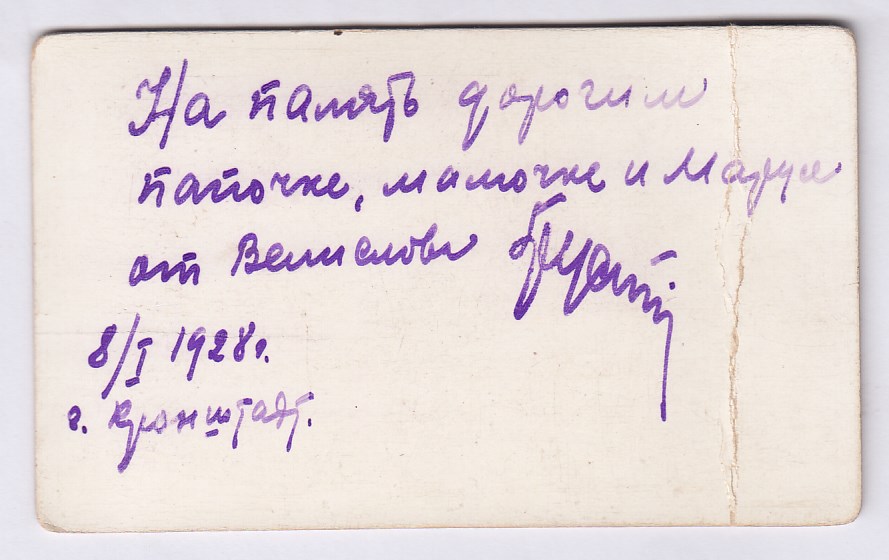 На память дорогим
папочке, мамочке и Марусе
от Велислова
8/I 1928 г.
г. Кронштадт.